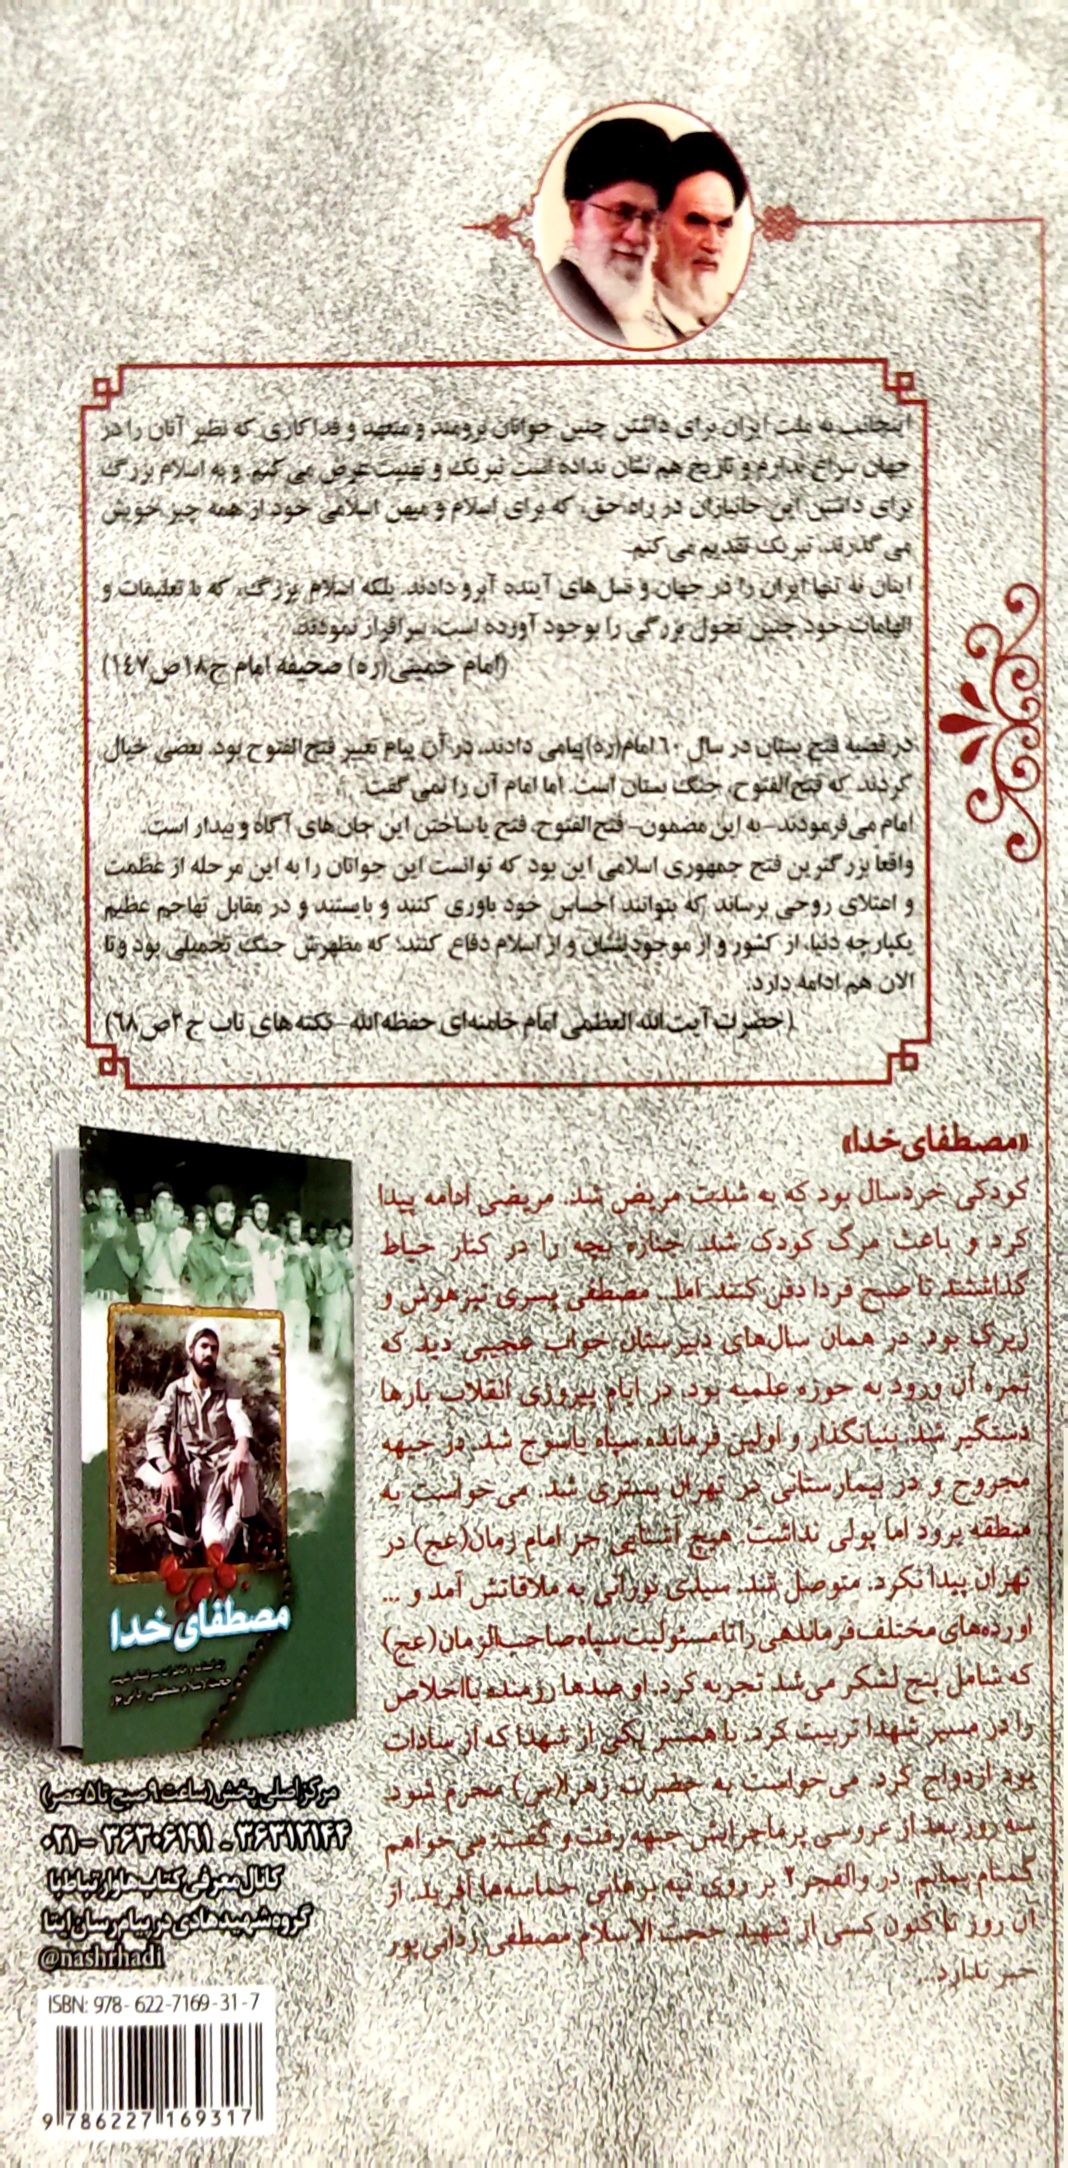 اینجانب به ملت ایران برای داشتن چنین جوانان برومند و متعهد و فداکاری که نظیر آنان را در
جهان سراغ ندارم و تاریخ هم نشان نداده است تبریک و تهنیت عرض می کنم. و به اسلام بزرگ
برای داشتن این جانبازان در راه حق، که برای اسلام و میهن اسلامی خود از همه چیز خویش
می گذرند، تبریک تقدیم می کنم.
اینان نه تنها ایران را در جهان و نسل‌های آینده آبرو دادند. بلکه اسلام بزرگ، که با تعلیمات و
الهامات خود چنین تحول بزرگی را بوجود آورده است، سرافراز نمودند.
(امام خمینی(ره) صحیفه امام ج۱۸ص۱٤۷)
در قضیه فتح بستان در سال ٦۰ امام(ره)پیامی دادند، در آن پیام تعبیر فتح‌الفتوح بود. بعضی خیال
کردند که فتح‌الفتوح، جنگ بستان است. اما امام آن را نمی گفت.
امام می‌فرمودند-به این مضمون- فتح‌الفتوح، فتح با ساختن این جان‌های آگاه و بیدار است.
واقعاً بزرگترین فتح جمهوری اسلامی این بود که توانست این جوانان را به این مرحله از عظمت
و اعتلای روحی برساند که بتوانند احساس خود باوری کنند و بایستند و در مقابل تهاجم عظیم
یکپارچه دنیا، از کشور و از موجودیتشان و از اسلام دفاع کنند؛ که مظهرش جنگ تحمیلی بود و تا
الان هم ادامه دارد.
(حضرت آیت الله العظمی امام خامنه‌ای حفظه الله-نکته های ناب ج۳ص٦۸)
«مصطفای خدا»
کودکی خردسال بود که به شدت مریض شد. مریضی ادامه پیدا
کرد و باعث مرگ کودک شد. جنازه بچه را در کنار حیاط
گذاشتند تا صبح فردا دفن کنند. اما... مصطفی پسری تیزهوش و
زیرک بود. در همان سال‌های دبیرستان خواب عجیبی دید که
ثمره آن ورود به حوزه علمیه بود. در ایام پیروزی انقلاب بارها
دستگیر شد. بنیانگذار و اولین فرمانده سپاه یاسوج شد. در جبهه
مجروح و در بیمارستانی در تهران بستری شد. می‌خواست به
منطقه برود اما پولی نداشت. هیچ آشنایی جز امام زمان(عج) در
تهران پیدا نکرد. متوصل شد. سیدی نورانی به ملاقاتش آمد و ...
او رده‌های مختلف فرماندهی را تا مسئولیت سپاه صاحب‌الزمان(عج)
که شامل پنج لشکر می‌شد تجربه کرد. او صدها رزمنده بااخلاص
را در مسیر شهدا تربیت کرد. با همسر یکی از شهدا که از سادات
بود ازدواج کرد. می‌خواست به حضرت زهرا(س) محرم شود.
سه روز بعد از عروسی پرماجرایش جبهه رفت و گفت: می‌خواهم
گمنام بمانم. در والفجر۲ بر روی تپه برهانی حماسه‌ها آفرید. از
آن روز تا کنون کسی از شهید حجت الاسلام مصطفی ردانی‌پور
خبر ندارد...
مصطفای خدا
زندگینامه و خاطرات سرلشکر شهید
حجت الاسلام مصطفی ردانی پور
مرکز اصلی پخش (ساعت ۹ صبح تا ۵ عصر)
۰۲۱ - ۳۶۳۰۶۱۹۱ - ۳۶۳۱۲۱۴۴
کانال معرفی کتاب‌ها و ارتباط با
گروه شهید هادی در پیام رسان ایتا
@nashrhadi
ISBN: 978-622-7169-31-7
9 786227 169317